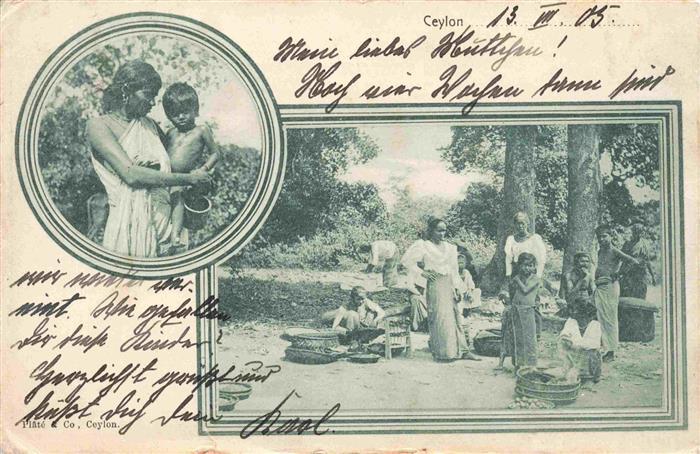 Ceylon, 13. VIII. 05.
Mein liebes Muttchen!
Noch vier Wochen dann sind
wir wieder ver-
eint. Wie gefallen
Dir diese Kinder?
Herzlichst grüßt und
küßt Dich Dein Karl.
Plâté & Co, Ceylon.